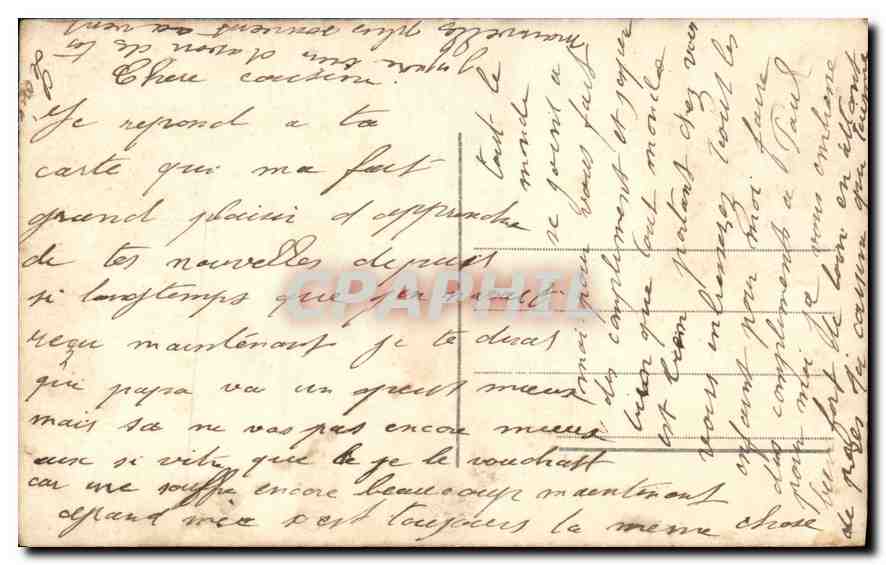 Chere cousine
Je repond a ta
carte qui ma fait
grand plaisir d apprendre
de tes nouvelles depuis
si longtemps que j en
reçu maintenant je te dirai
qui papa va un peut mieux
mais sa ne vas pas encore mieux
aussi vite que je le voudrait
car une souffre encore beaucoup maintenant
grand c est toujours la meme chose
tout le
monde
se joint a
moi pour vous fait
des compliment et
bien que tout monde
est bien portant chez vous
vous embrassez tous les
enfant pour moi faire
des compliments a Paul
pour moi je vous embrasse
bien fort de loin en
de près ta cousine qui t aime
nouvelle plus souvent
CPARHIL